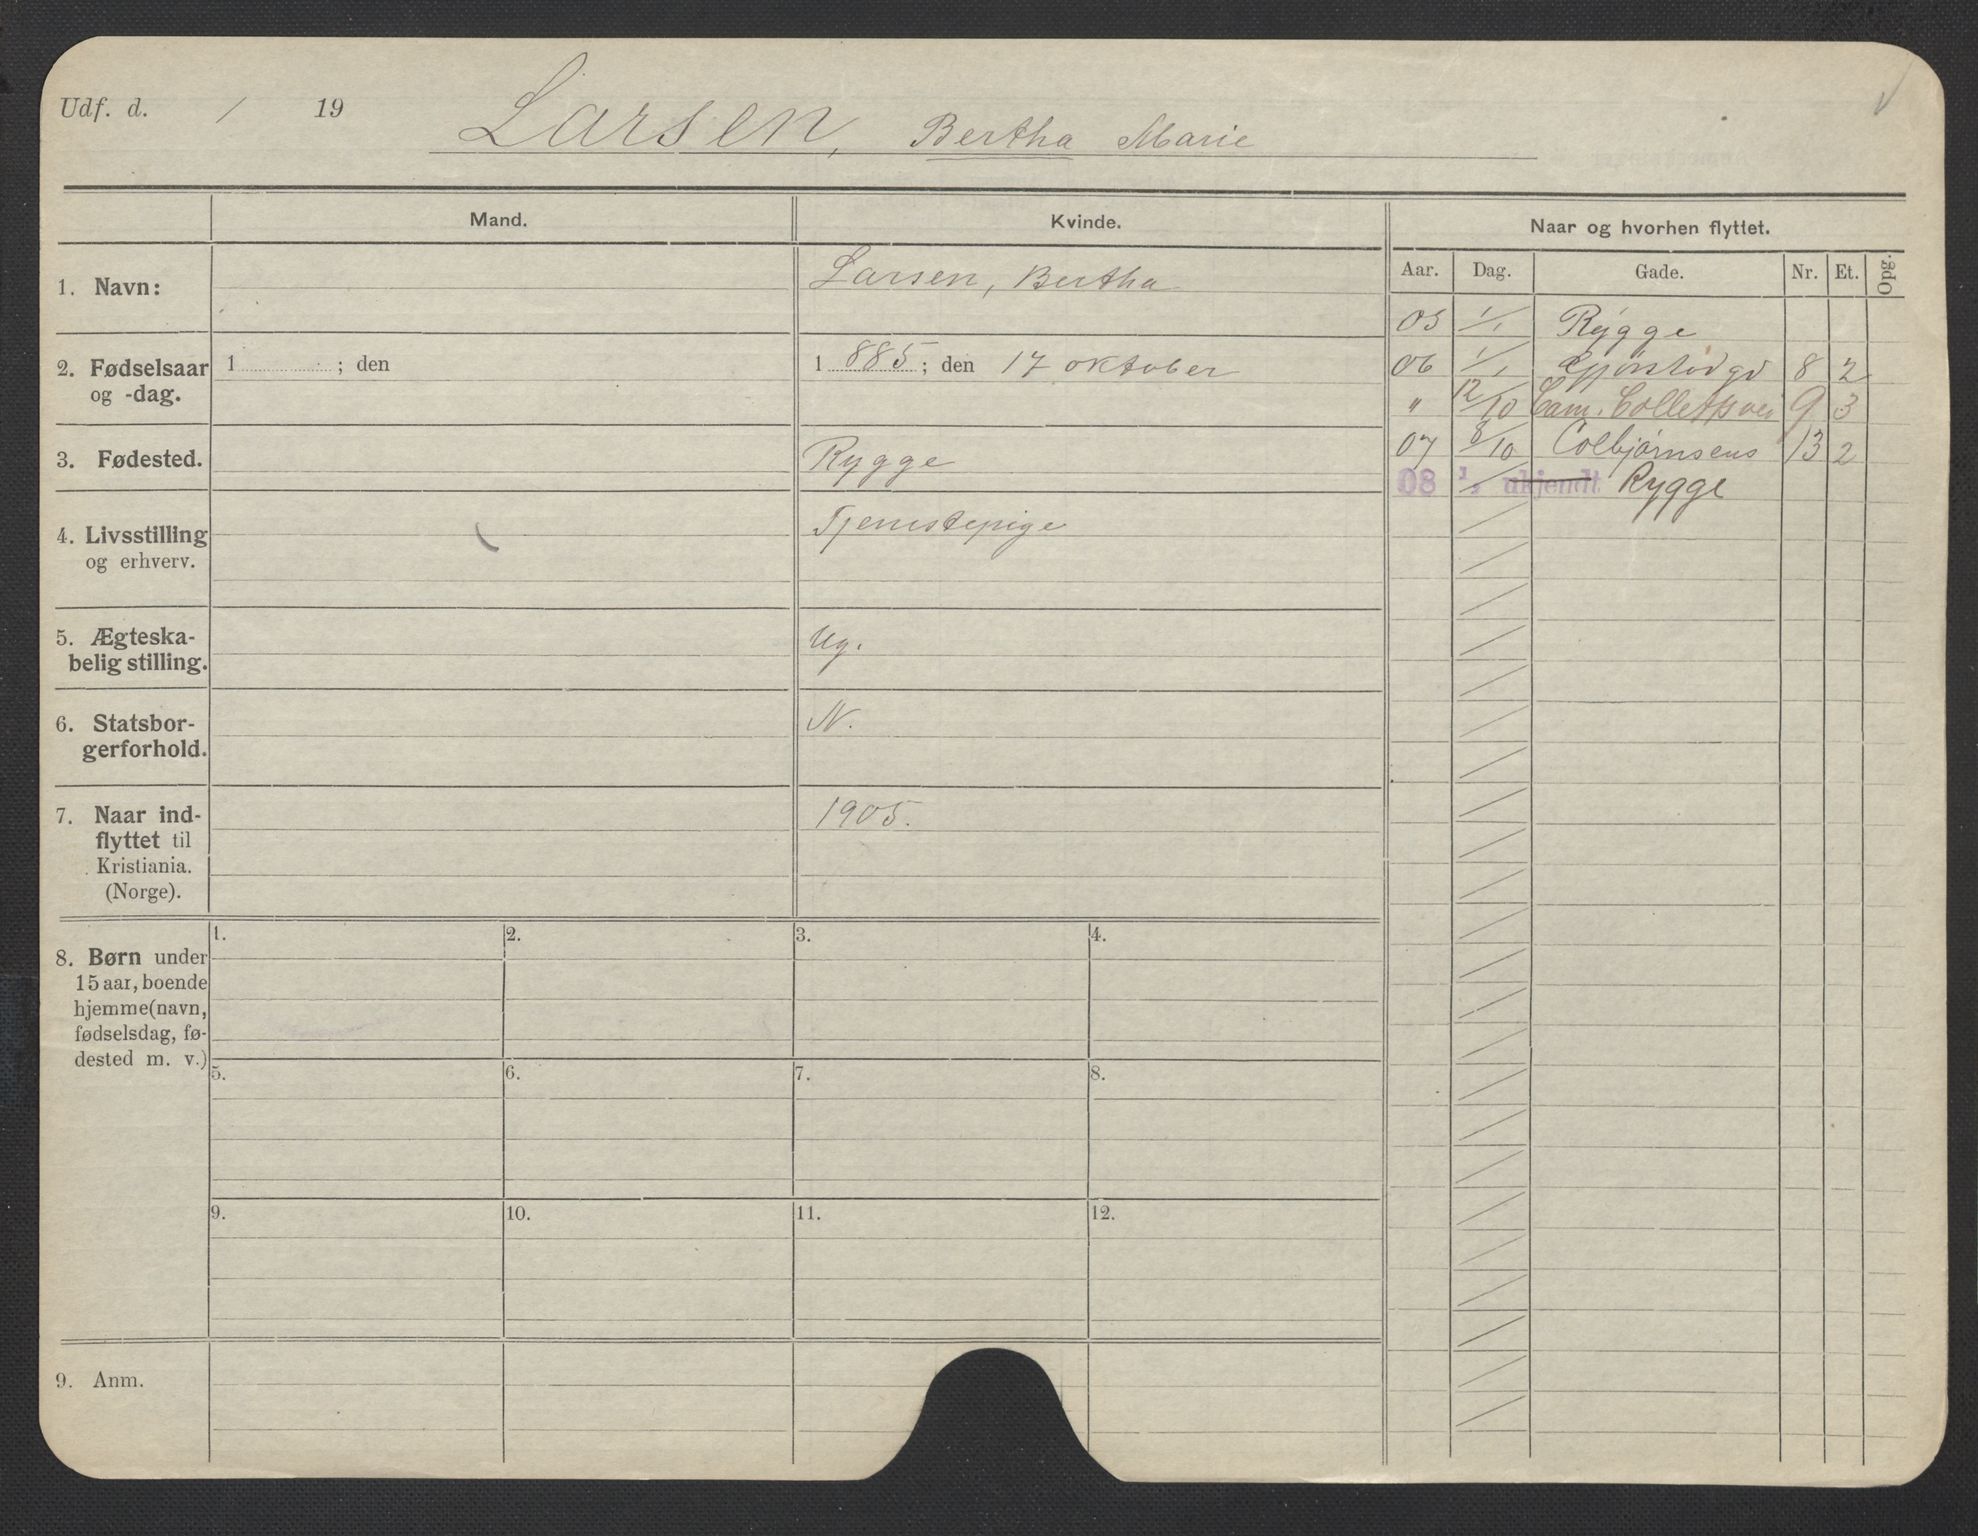 Udf. d. / 19
Larsen, Bertha Marie
Mand.
Kvinde.
Naar og hvorhen flyttet.
Aar. Dag. Gade. Nr. Et. Opg.
1. Navn:
Larsen, Bertha
2. Fødselsaar
og -dag.
1 ; den
1 885 ; den 17 oktober
3. Fødested.
Rygge
4. Livsstilling
og erhverv.
Tjenestepige
5. Ægteska-
belig stilling.
Ug.
6. Statsbor-
gerforhold.
N.
7. Naar ind-
flyttet til
Kristiania.
(Norge).
1905.
8. Børn under
15 aar, boende
hjemme (navn,
fødselsdag, fø-
dested m. v.)
1. 2. 3. 4.
5. 6. 7. 8.
9. 10. 11. 12.
9. Anm.
05 1/1 Rygge
06 1/1 8 2
" 12/10 Cam. Collettsvei 9 3
07 8/10 Colbjørnsens 13 2
08 1/1 ukjendt Rygge